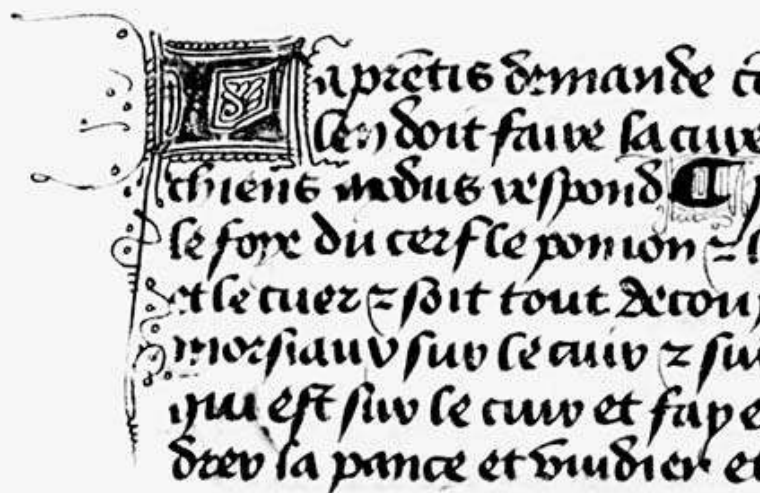 Laprētis demande cō
len doit faire la cure
chiens modus respond
le foye du cerf le pomon ⁊ l
et le cuer ⁊ soit tout decoup
morsiaux sur le cuir ⁊ sur
qui est sur le cuir et fay e
drer la pance et vuidier et